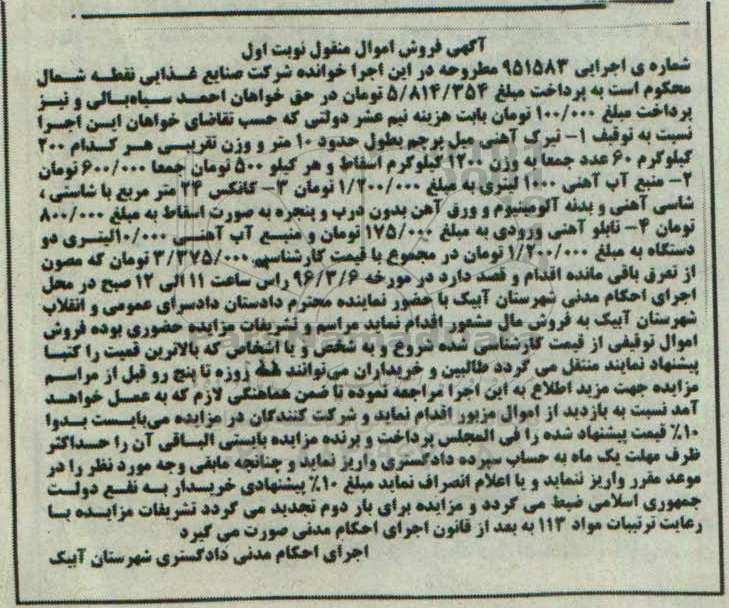 آگهی فروش اموال منقول نوبت اول
شماره ی اجرایی ۹۵۱۵۸۳ مطروحه در این اجرا خوانده شرکت صنایع غذایی نقطه شمال
محکوم است به پرداخت مبلغ ۵/۸۱۴/۳۵۴ تومان در حق خواهان احمد سیاه‌بالی و نیز
پرداخت مبلغ ۱۰۰/۰۰۰ تومان بابت هزینه نیم عشر دولتی که حسب تقاضای خواهان این اجرا
نسبت به توقیف ۱- تیرک آهنی میل پرچم بطول حدود ۱۰ متر و وزن تقریبی هر کدام ۲۰۰
کیلوگرم ۶۰ عدد جمعا به وزن ۱۲۰۰ کیلوگرم اسقاط و هر کیلو ۵۰۰ تومان جمعا ۶۰۰/۰۰۰ تومان
۲- منبع آب آهنی ۱۰۰۰ لیتری به مبلغ ۱/۲۰۰/۰۰۰ تومان ۳- کانکس ۲۴ متر مربع با شاستی ،
شاسی آهنی و بدنه آلومینیوم و ورق آهن بدون درب و پنجره به صورت اسقاط به مبلغ ۸۰۰/۰۰۰
تومان ۴- تابلو آهنی ورودی به مبلغ ۱۷۵/۰۰۰ تومان و منبع آب آهنی ۱۰/۰۰۰لیتری دو
دستگاه به مبلغ ۱/۲۰۰/۰۰۰ تومان در مجموع با قیمت کارشناسی ۳/۳۷۵/۰۰۰ تومان که مصون
از تعرق باقی مانده اقدام و قصد دارد در مورخه ۹۶/۳/۶ راس ساعت ۱۱ الی ۱۲ صبح در محل
اجرای احکام مدنی شهرستان آبیک با حضور نماینده محترم دادستان دادسرای عمومی و انقلاب
شهرستان آبیک به فروش مال مشعور اقدام نماید مراسم و تشریفات مزایده حضوری بوده فروش
اموال توقیفی از قیمت کارشناسی شده شروع و به شخص و یا اشخاص که بالاترین قمیت را کتبا
پیشنهاد نمایند منتقل می گردد طالبین و خریداران می‌توانند همه روزه تا پنج رو قبل از مراسم
مزایده جهت مزید اطلاع به این اجرا مراجعه نموده تا ضمن هماهنگی لازم که به عمل خواهد
آمد نسبت به بازدید از اموال مزبور اقدام نماید و شرکت کنندگان در مزایده می‌بایست بدوا
۱۰٪ قیمت پیشنهاد شده را فی المجلس پرداخت و برنده مزایده بایستی الباقی آن را حداکثر
ظرف مهلت یک ماه به حساب سپرده دادگستری واریز نماید و چنانچه مابقی وجه مورد نظر را در
موعد مقرر واریز ننماید و یا اعلام انصراف نماید مبلغ ۱۰٪ پیشنهادی خریدار به نفع دولت
جمهوری اسلامی ضبط می گردد و مزایده برای بار دوم تجدید می گردد تشریفات مزایده با
رعایت ترتیبات مواد ۱۱۳ به بعد از قانون اجرای احکام مدنی صورت می گیرد
اجرای احکام مدنی دادگستری شهرستان آبیک